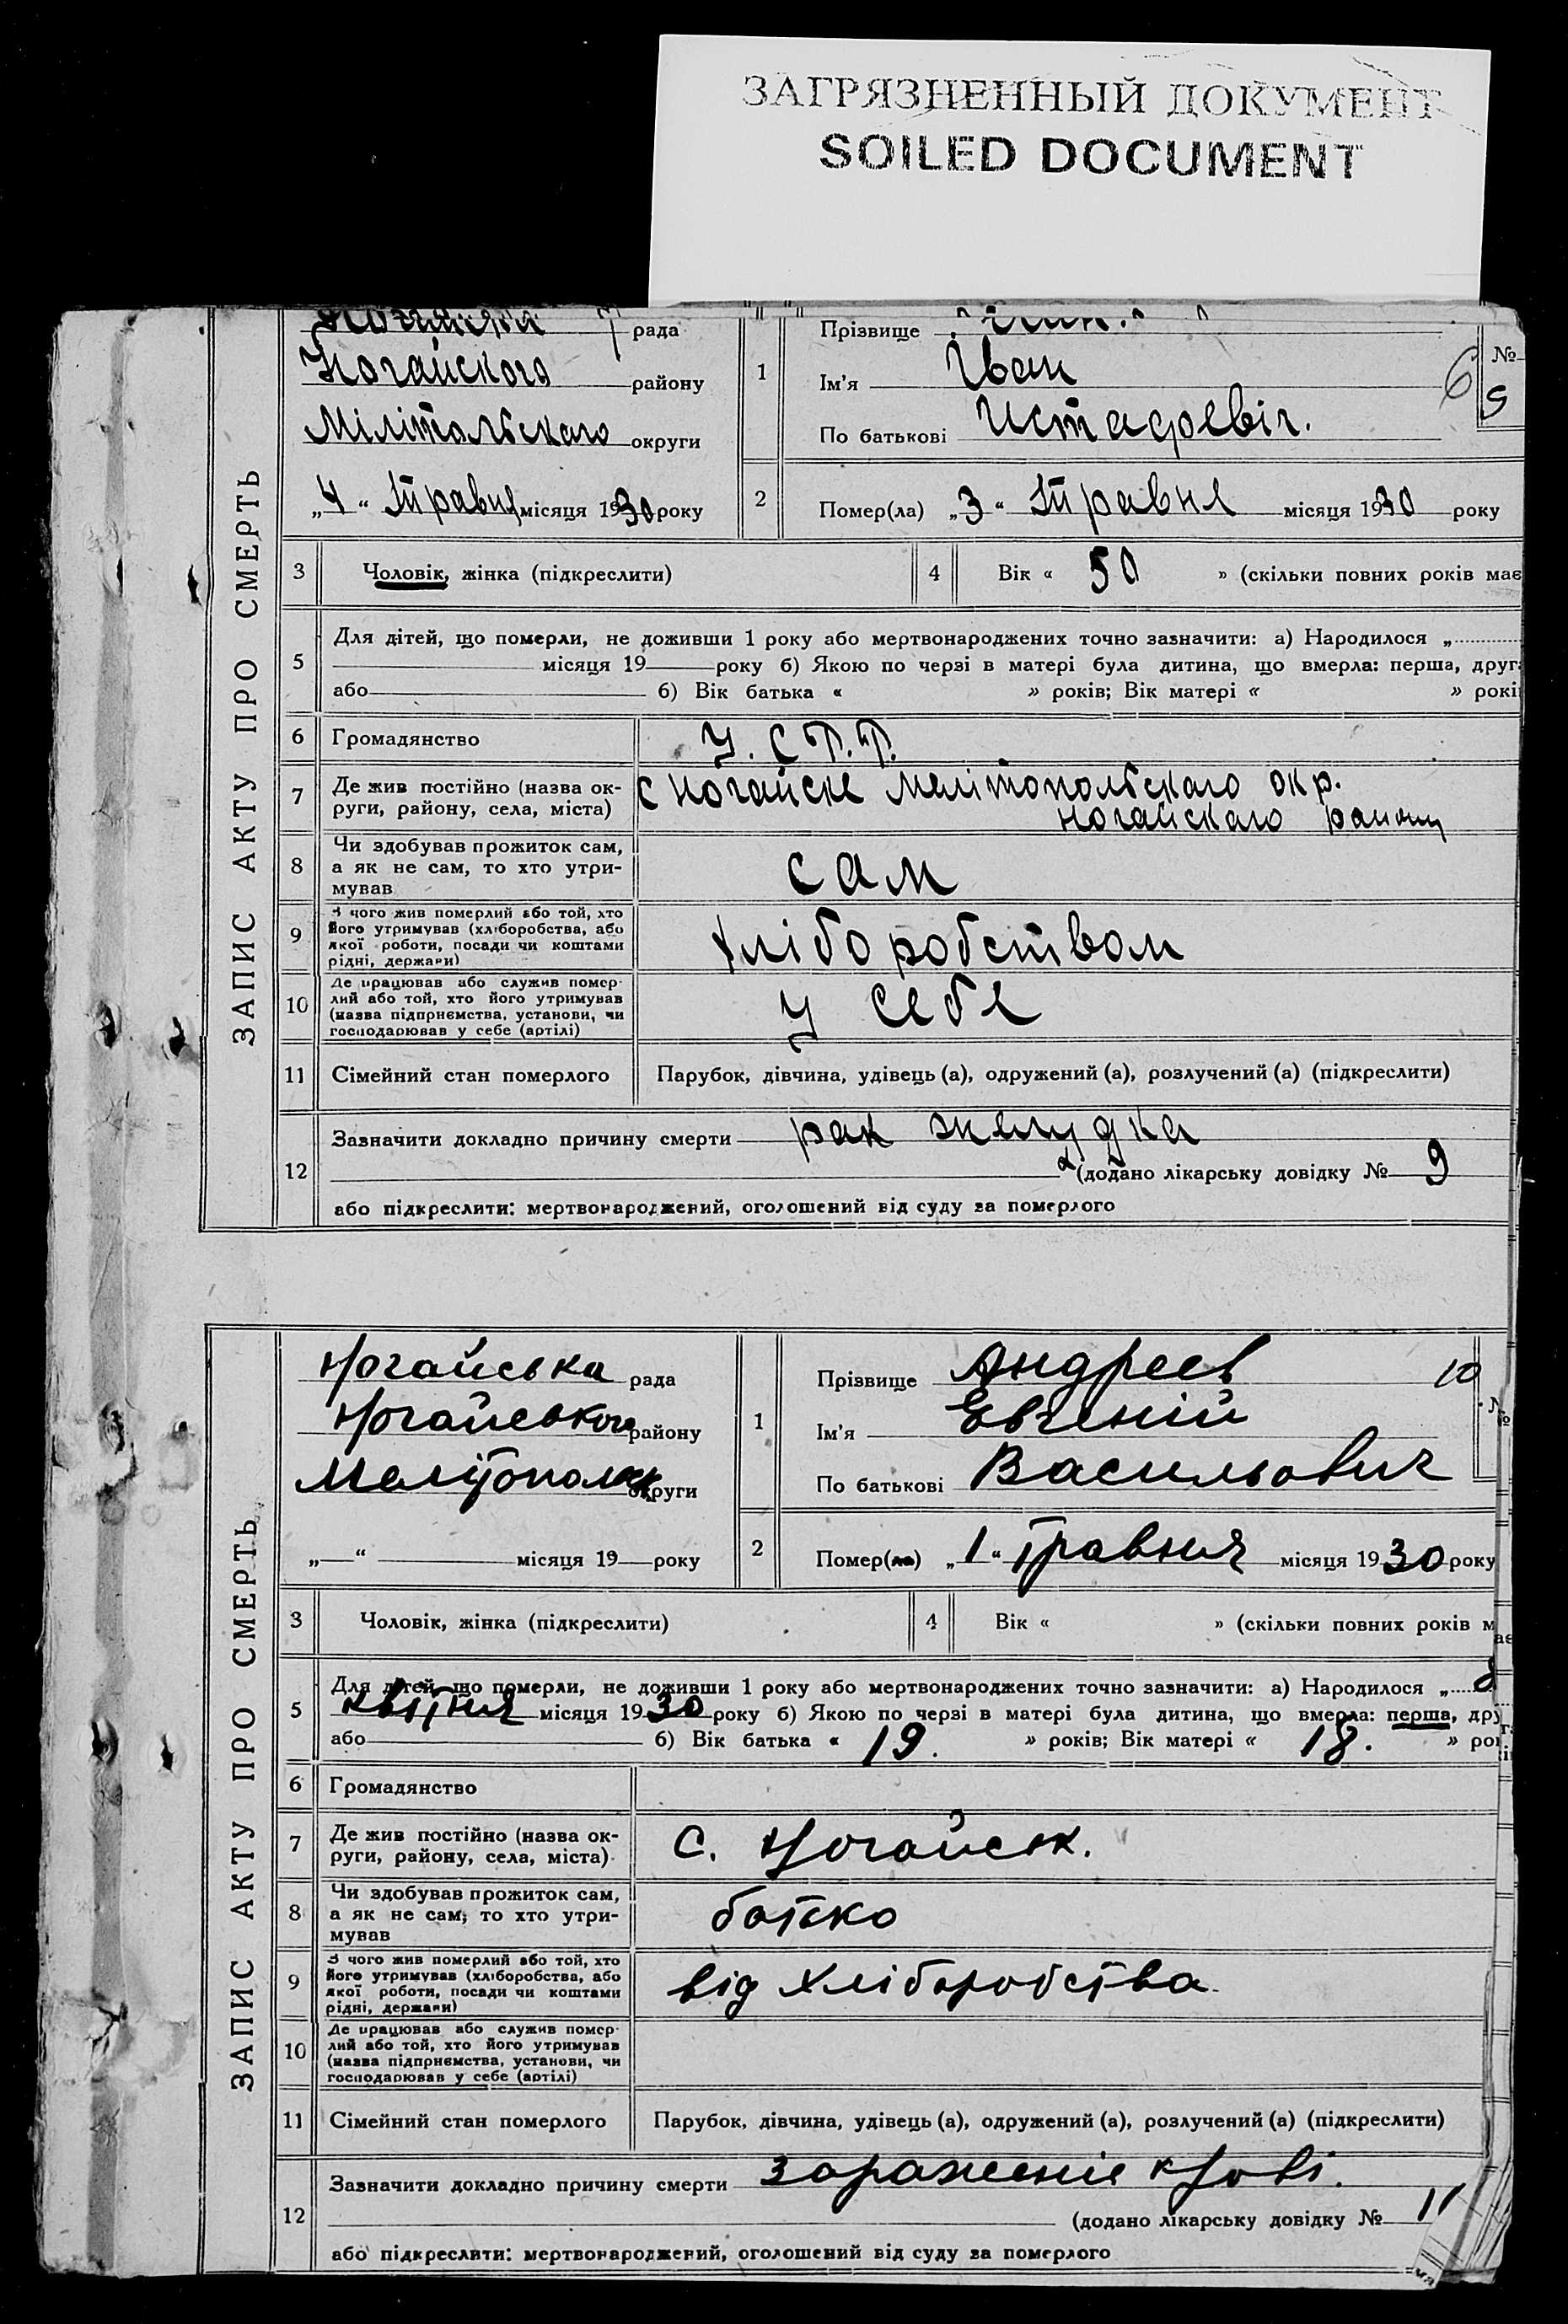 ЗАГРЯЗНЕННЫЙ ДОКУМЕНТ
SOILED DOCUMENT
ЗАПИС АКТУ ПРО СМЕРТЬ
рада
Ногайского району
Мілітольского округи
„4“ Травня місяця 1930 року
1
Прізвище
Ім'я Іван
По батькові Истафевіч.
6
№
9
2
Помер(ла) „3“ Травня місяця 1930 року
3 Чоловік, жінка (підкреслити)
4 Вік « 50 » (скільки повних років має
5
Для дітей, що померли, не доживши 1 року або мертвонароджених точно зазначити: а) Народилося „
місяця 19 року б) Якою по черзі в матері була дитина, що вмерла: перша, друга
або б) Вік батька « » років; Вік матері « » рокі
6 Громадянство У.С.Р.Р.
7 Де жив постійно (назва округи, району, села, міста) с Ногайске Мелітопольского окр.
Ногайского району
8 Чи здобував прожиток сам,
а як не сам, то хто утримував
сам
9 З чого жив померлий або той, хто
його утримував (хліборобства, або
якої роботи, посади чи коштами
рідні, держави)
хліборобством
10 Де працював або служив померлий або той, хто його утримував
(назва підприємства, установи, чи
господарював у себе (артілі)
у себе
11 Сімейний стан померлого Парубок, дівчина, удівець (а), одружений (а), розлучений (а) (підкреслити)
12
Зазначити докладно причину смерти рак желудка
(додано лікарську довідку № 9
або підкреслити: мертвонароджений, оголошений від суду за померлого
ЗАПИС АКТУ ПРО СМЕРТЬ
Ногайська рада
Ногайського району
Мелітополськ округи
„ “ місяця 19 року
1
Прізвище Андреев
Ім'я Евгеній
По батькові Васильович
10
№
2
Помер(ла) „1“ Травня місяця 1930 року
3 Чоловік, жінка (підкреслити)
4 Вік « » (скільки повних років має
5
Для дітей, що померли, не доживши 1 року або мертвонароджених точно зазначити: а) Народилося „8
квітня місяця 1930 року б) Якою по черзі в матері була дитина, що вмерла: перша, дру
або б) Вік батька « 19. » років; Вік матері « 18. » рок
6 Громадянство
7 Де жив постійно (назва округи, району, села, міста) С. Ногайськ.
8 Чи здобував прожиток сам,
а як не сам, то хто утримував
батько
9 З чого жив померлий або той, хто
його утримував (хліборобства, або
якої роботи, посади чи коштами
рідні, держави)
від хліборобства
10 Де працював або служив померлий або той, хто його утримував
(назва підприємства, установи, чи
господарював у себе (артілі)
11 Сімейний стан померлого Парубок, дівчина, удівець (а), одружений (а), розлучений (а) (підкреслити)
12
Зазначити докладно причину смерти зараженіе крові.
(додано лікарську довідку № 11
або підкреслити: мертвонароджений, оголошений від суду за померлого